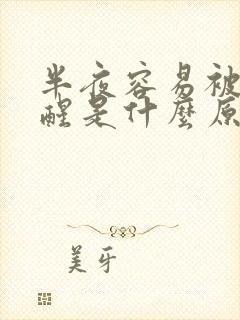 半夜容易被
醒是什麼原
美牙